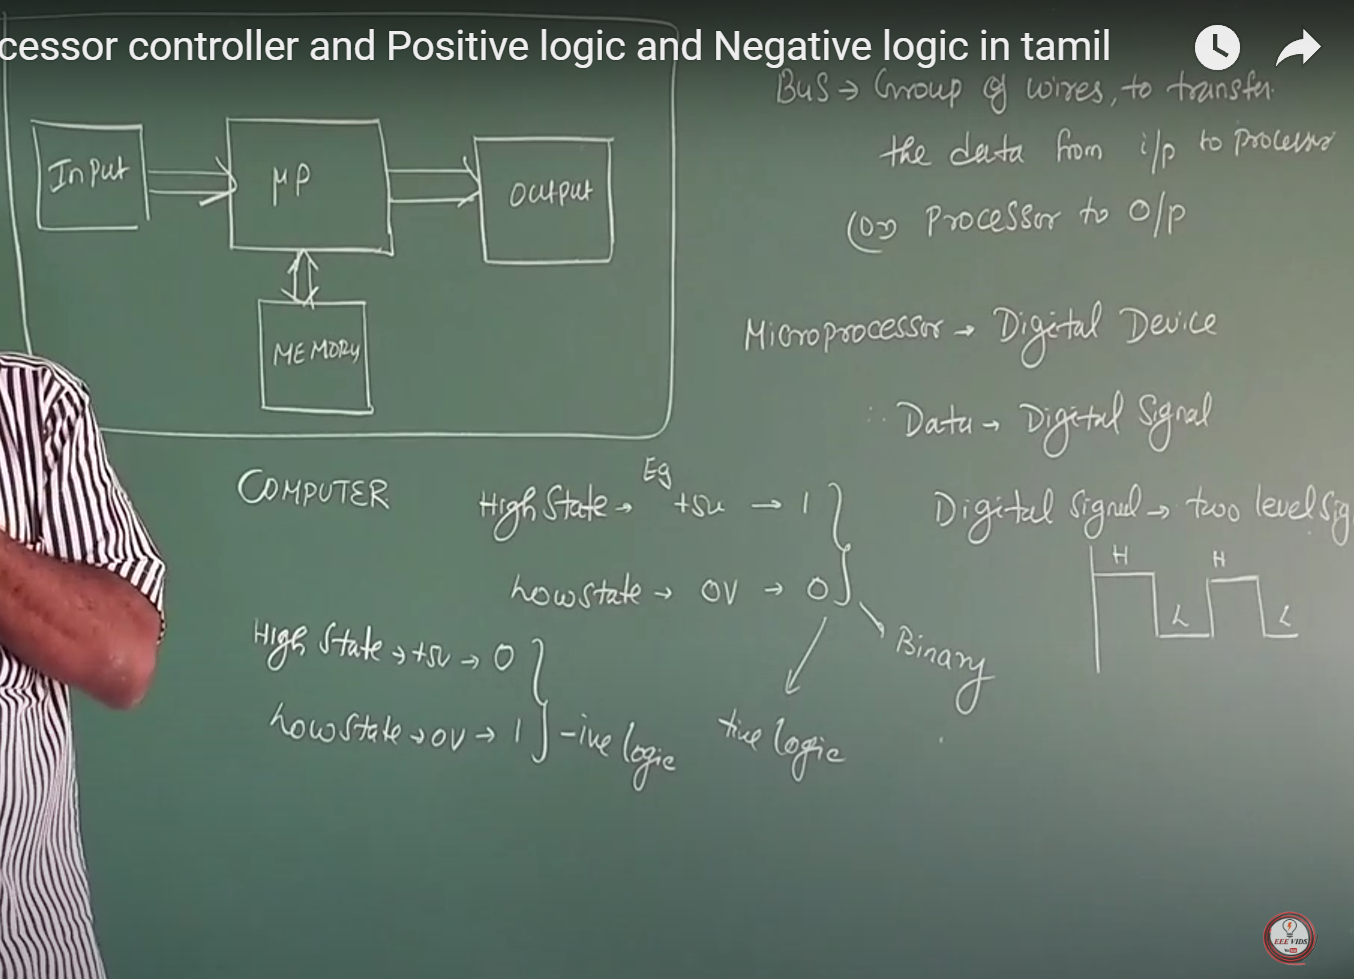 cessor controller and Positive logic and Negative logic in tamil
BUS → Group of wires, to transfer
the data from i/p to Processor
(or) Processor to O/p
Input
μP
Output
MEMORY
COMPUTER
Microprocessor → Digital Device
∴ Data → Digital Signal
Digital Signal → two level Sig
H
H
L
L
Eg
High State → +5v → 1
Low State → 0V → 0
Binary
+ive logic
High State → +5v → 0
Low State → 0V → 1
-ive logic
EEE VIDS